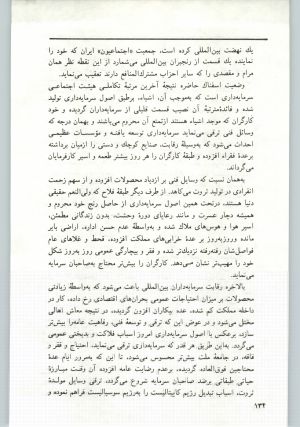 یك نهضت بین‌المللی كرده است، جمعیت «اجتماعیون» ایران كه خود را
نماینده یك قسمت از رنجبران بین‌المللی می‌شمارد از این نقطه نظر همان
مرام و مقصدی را كه سایر احزاب مشترك‌المنافع دارند تعقیب می‌نماید.
وضعیت اسفناك حاضره نتیجهٔ آخرین مرتبهٔ تكاملی هیئت اجتماعی
سرمایه‌داری است كه به‌موجب آن، اشیاء، برطبق اصول سرمایه‌داری تولید
شده و فائدهٔ مترتبهٔ آن نصیب قسمت قلیلی از سرمایه‌داران گردیده و خود
كارگران كه موجد اشیاء هستند ازتمتع آن محروم می‌باشند و بهمان درجه كه
وسائل فنی ترقی می‌نماید سرمایه‌داری توسعه یافته و مؤسسات عظیمی
احداث می‌شود كه به‌وسیلهٔ رقابت، صنایع كوچك و دستی را ازمیان برداشته
برعدهٔ فقراء افزوده و طبقهٔ كارگران را هر روز بیشتر طعمه و اسیر كارفرمایان
می‌گرداند.
به‌همان نسبت كه وسایل فنی بر ازدیاد محصولات افزوده و از سهم زحمت
انفرادی در تولید ثروت می‌كاهد. از طرف دیگر طبقهٔ فلاح كه ولی‌النعم حقیقی
دنیا هستند، درتحت همین اصول سرمایه‌داری از حاصل رنج خود محروم و
همیشه دچار عسرت و مانند رعایای دورهٔ وحشت، بدون زندگانی مطمئن،
اسیر هوا و هوس‌های ملاك شده و به‌واسطهٔ عدم حسن اداره، اراضی بایر
مانده وروزبه‌روز بر عدهٔ خرابی‌های مملكت افزوده، قحط و غلاهای عام
فواصل‌شان رفته‌رفته نزدیك‌تر شده و فقر و بیچارگی عمومی روز به‌روز شكل
خود را مهیب‌تر نشان می‌دهد. كارگران را بیش‌تر محتاج به‌صاحبان سرمایه
می‌نماید.
بالاخره رقابت سرمایه‌داران بین‌المللی باعث می‌شود كه به‌واسطهٔ زیادتی
محصولات بر میزان احتیاجات عمومی بحران‌های اقتصادی رخ داده، كار در
داخله مملكت كم شده، عده بیكاران افزون گردیده، در نتیجه معاش اهالی
مختل می‌شود و در عوض این كه ترقی و توسعه فنی، رفاهیت عامه‌را بیش‌تر
سازد، برعكس با اصول سرمایه‌داری امروز اسباب فلاكت و بدبختی عمومی
می‌گردد. به‌این طریق هر قدر كه سرمایه‌داری ترقی می‌نماید. احتیاج و فقر و
فاقه، در جامعهٔ ملت بیش‌تر محسوس می‌شود، تا این كه به‌مرور ایام عدهٔ
محتاجین فوق‌العاده گردیده، برعدم رضایت عامه افزوده آن وقت مبارزهٔ
حیاتی طبقاتی برضد صاحبان سرمایه شروع می‌گردد، ترقی وسایل مولدهٔ
ثروت، اسباب تبدیل رژیم كاپیتالیست را به‌رژیم سوسیالیست فراهم نموده و
۱۳۲